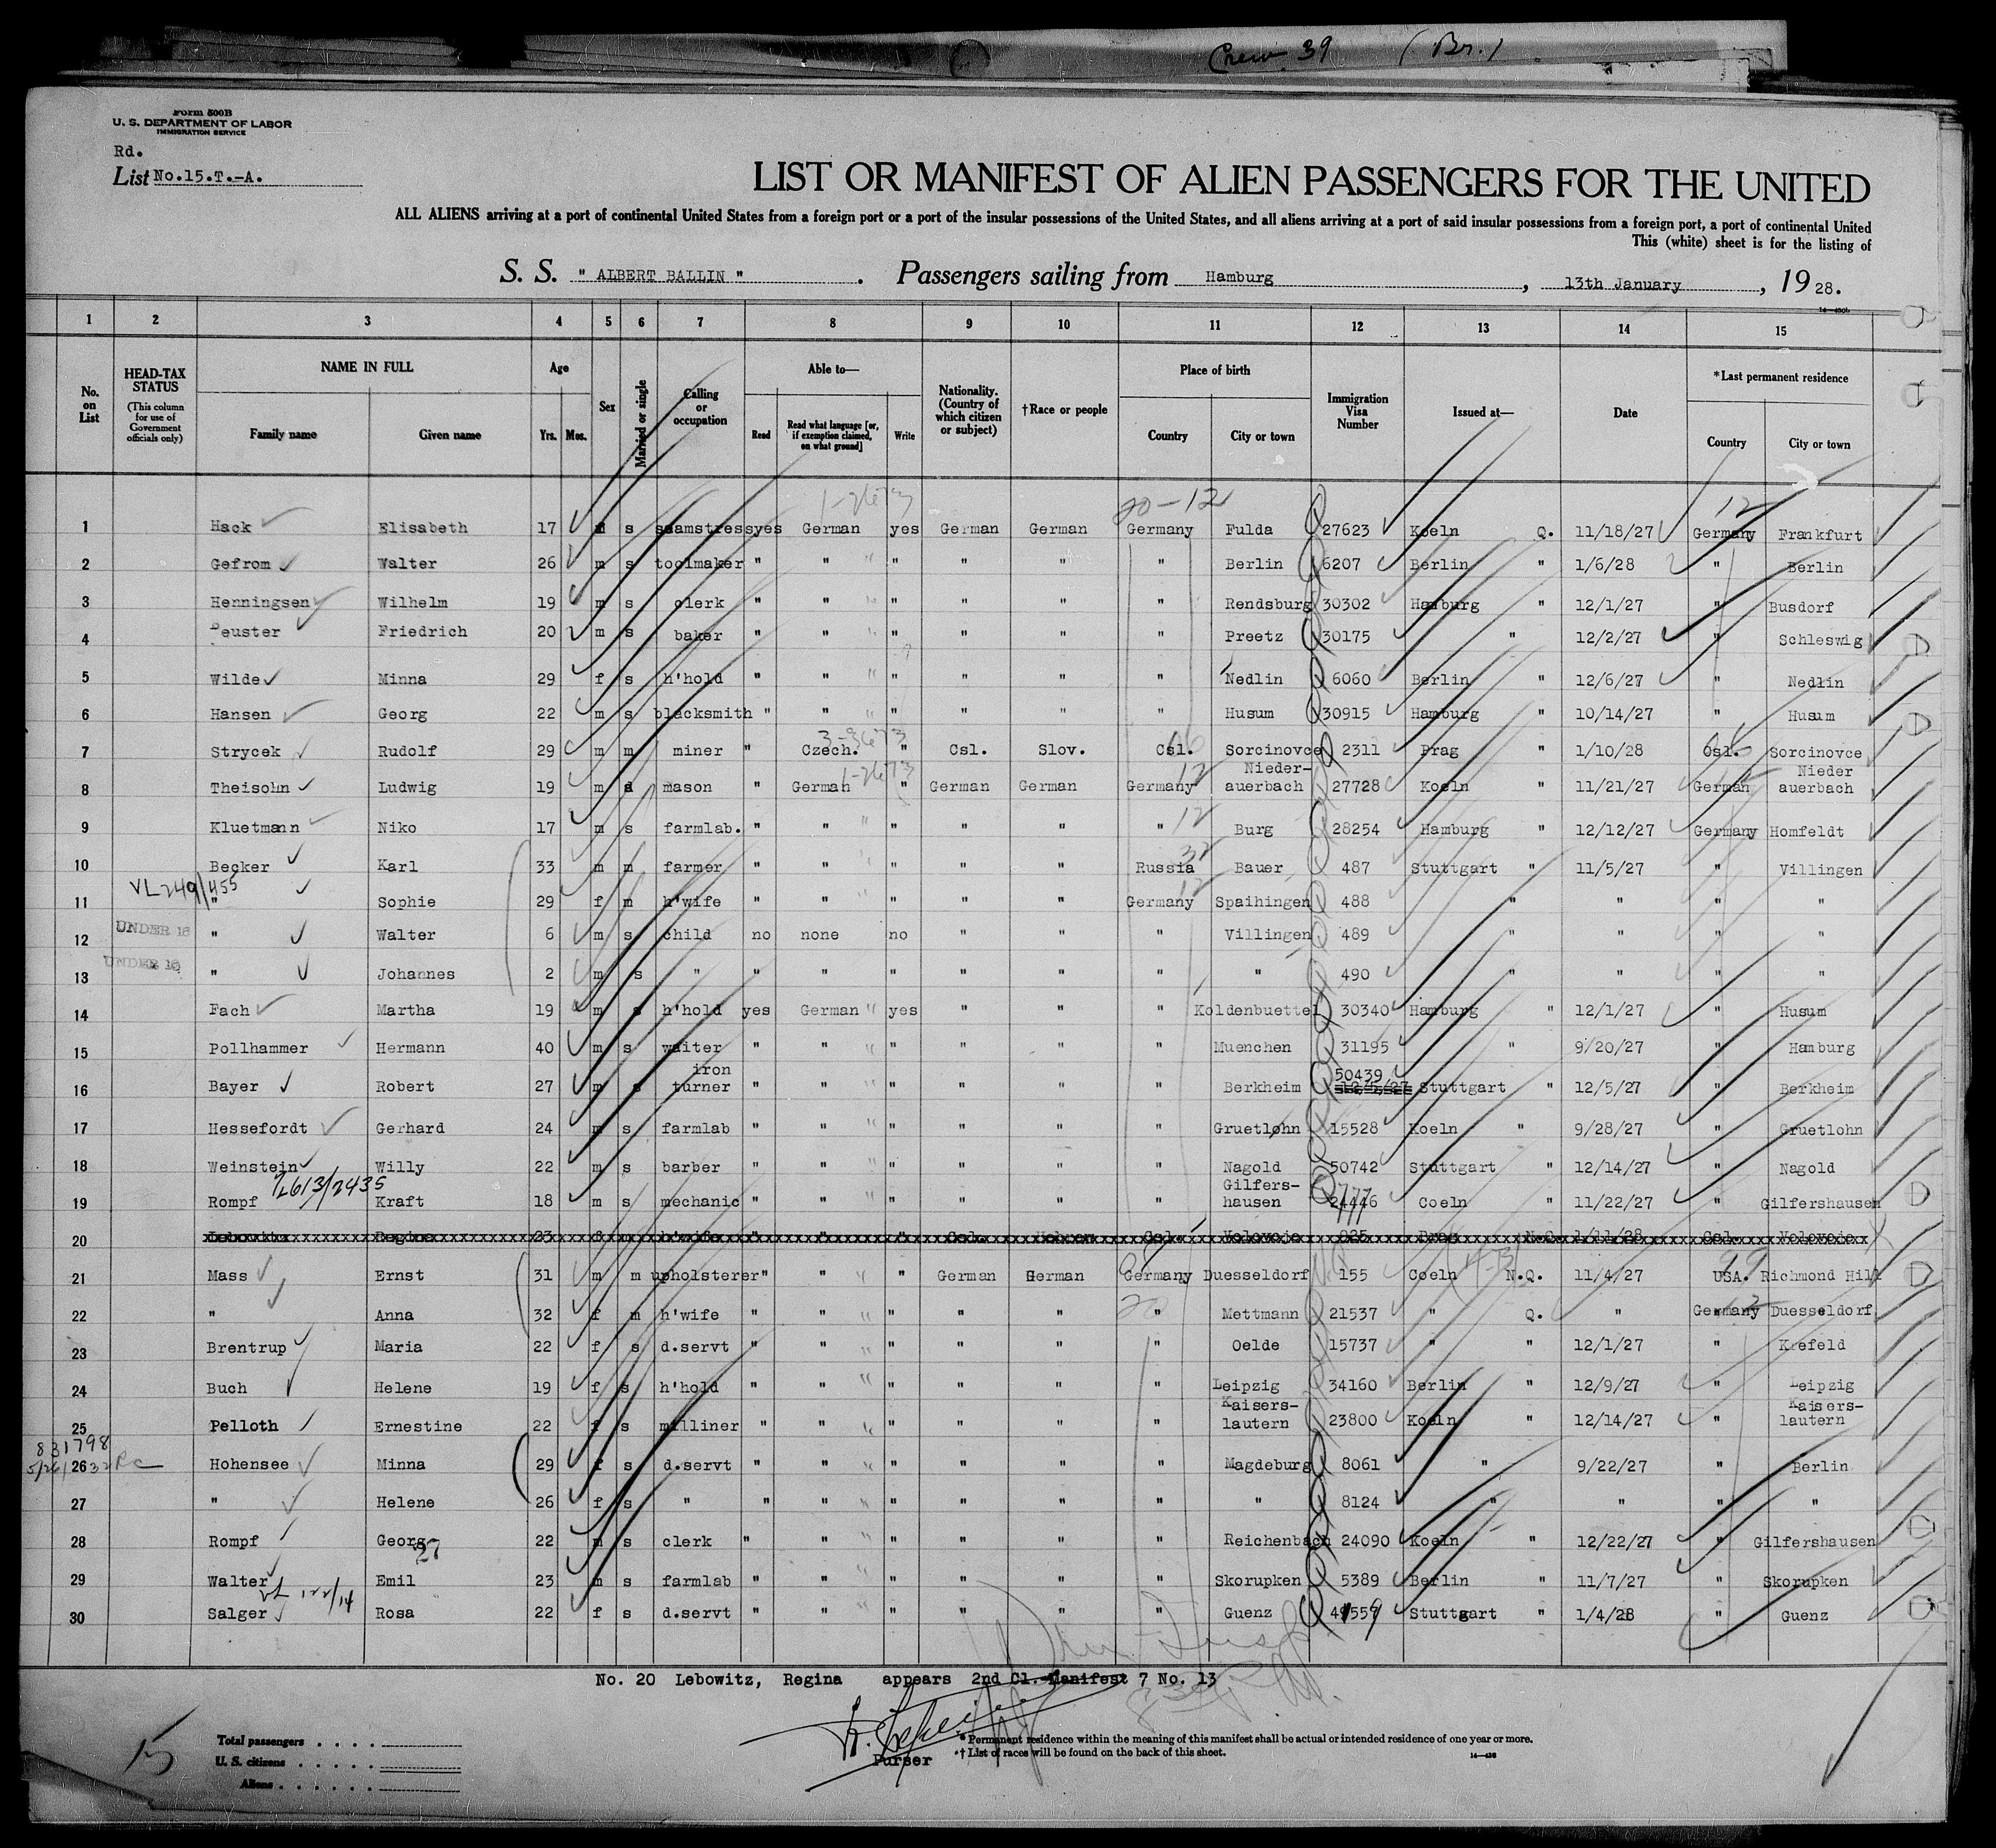 Crew 39 (Br.)
Form 500B
U. S. DEPARTMENT OF LABOR
IMMIGRATION SERVICE
Rd.
List No.15.T.-A.
LIST OR MANIFEST OF ALIEN PASSENGERS FOR THE UNITED
ALL ALIENS arriving at a port of continental United States from a foreign port or a port of the insular possessions of the United States, and all aliens arriving at a port of said insular possessions from a foreign port, a port of continental United
This (white) sheet is for the listing of
S. S. " ALBERT BALLIN " . Passengers sailing from Hamburg , 13th January , 19 28.
1 2 3 4 5 6 7 8 9 10 11 12 13 14 15
No. on List
HEAD-TAX STATUS (This column for use of Government officials only)
NAME IN FULL Family name Given name
Age Yrs. Mos.
Sex
Married or single
Calling or occupation
Able to— Read Read what language [or, if exemption claimed, on what ground] Write
Nationality. (Country of which citizen or subject)
†Race or people
Place of birth Country City or town
Immigration Visa Number
Issued at—
Date
*Last permanent residence Country City or town
20-12 12
1 Hack Elisabeth 17 s seamstress yes German yes German German Germany Fulda 27623 Koeln Q. 11/18/27 Germany Frankfurt
2 Gefrom Walter 26 m s toolmaker " " " " " " Berlin 6207 Berlin " 1/6/28 " Berlin
3 Henningsen Wilhelm 19 m s clerk " " " " " " Rendsburg 30302 Hamburg " 12/1/27 " Busdorf
4 Peuster Friedrich 20 m s baker " " " " " " Preetz 30175 " " 12/2/27 " Schleswig
5 Wilde Minna 29 f s h'hold " " " " " " Nedlin 6060 Berlin " 12/6/27 " Nedlin
6 Hansen Georg 22 m s blacksmith " " " " " " Husum 30915 Hamburg " 10/14/27 " Husum
7 Strycek Rudolf 29 m m miner " Czech. " Csl. Slov. Csl. Sorcinovce 2311 Prag " 1/10/28 Csl. Sorcinovce
8 Theisohn Ludwig 19 m s mason " German " German German Germany Nieder-auerbach 27728 Koeln " 11/21/27 German Nieder auerbach
9 Kluetmann Niko 17 m s farmlab. " " " " " " Burg 28254 Hamburg " 12/12/27 Germany Homfeldt
10 Becker Karl 33 m m farmer " " " " " Russia Bauer 487 Stuttgart " 11/5/27 " Villingen
VL249/455
11 " Sophie 29 f m h'wife " " " " " Germany Spaihingen 488 " " " "
12 UNDER 16 " Walter 6 m s child no none no " " " Villingen 489 " " " "
13 UNDER 16 " Johannes 2 m s " " " " " " " " 490 " " " "
14 Fach Martha 19 m s h'hold yes German yes " " " Koldenbuettel 30340 Hamburg " 12/1/27 " Husum
15 Pollhammer Hermann 40 m s waiter " " " " " " Muenchen 31195 " 9/20/27 " Hamburg
16 Bayer Robert 27 m s iron turner " " " " " " Berkheim 50439 Stuttgart " 12/5/27 " Berkheim
17 Hessefordt Gerhard 24 m s farmlab " " " " " " Gruetlohn 15528 Koeln " 9/28/27 " Gruetlohn
18 Weinstein Willy 22 m s barber " " " " " " Nagold 50742 Stuttgart " 12/14/27 " Nagold
19 Rompf Kraft 18 m s mechanic " " " " " " Gilfers-hausen 24446 Coeln " 11/22/27 " Gilfershausen
20 Lebowitz Regina 23 f m h'wife " " " Csl. Hebrew Csl. Volovoje 925 Prag N.Q. 1/11/28 Csl. Volovoje
21 Mass Ernst 31 m m upholsterer " " " German German Germany Duesseldorf 155 Coeln N.Q. 11/4/27 USA. Richmond Hill
22 " Anna 32 f m h'wife " " " " " " Mettmann 21537 " Q. " Germany Duesseldorf
23 Brentrup Maria 22 f s d.servt " " " " " " Oelde 15737 " " 12/1/27 " Krefeld
24 Buch Helene 19 f s h'hold " " " " " " Leipzig 34160 Berlin " 12/9/27 " Leipzig
25 Pelloth Ernestine 22 f s milliner " " " " " " Kaisers-lautern 23800 Koeln " 12/14/27 " Kaisers-lautern
831798
26 Hohensee Minna 29 f s d.servt " " " " " " Magdeburg 8061 " 9/22/27 " Berlin
27 " Helene 26 f s " " " " " " " " 8124 " " " "
28 Rompf Georg 22 m s clerk " " " " " " Reichenbach 24090 Koeln " 12/22/27 " Gilfershausen
29 Walter Emil 23 m s farmlab " " " " " " Skorupken 5389 Berlin " 11/7/27 " Skorupken
30 Salger Rosa 22 f s d.servt " " " " " " Guenz 49559 Stuttgart " 1/4/28 " Guenz
No. 20 Lebowitz, Regina appears 2nd Cl. Manifest 7 No. 13
Purser
15
Total passengers . . . .
U. S. citizens . . . . .
Aliens . . . . . .
* Permanent residence within the meaning of this manifest shall be actual or intended residence of one year or more.
† List of races will be found on the back of this sheet.